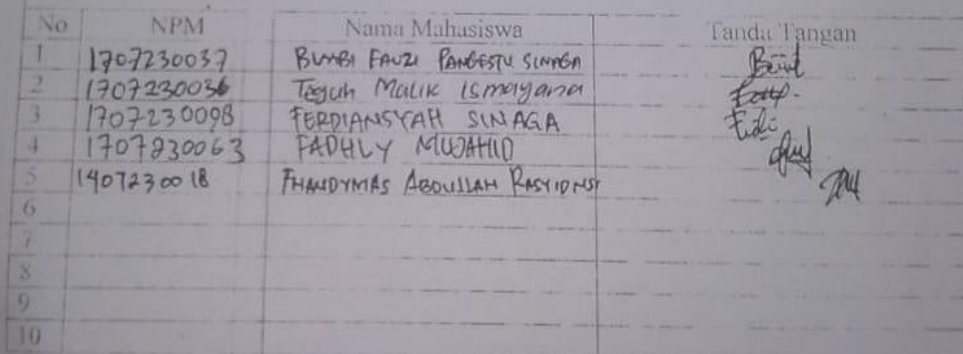 No NPM Nama Mahasiswa Tanda Tangan
1 1707230037 BUMBI FAUZI PANGESTU SINAGA
2 1707230036 Teguh Malik Ismayana
3 1707230098 FERDIANSYAH SINAGA
4 1707230063 FADHLY MUJAHID
5 1407230018 ABDULLAH
6
7
8
9
10